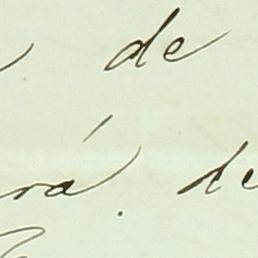 de
rá. de